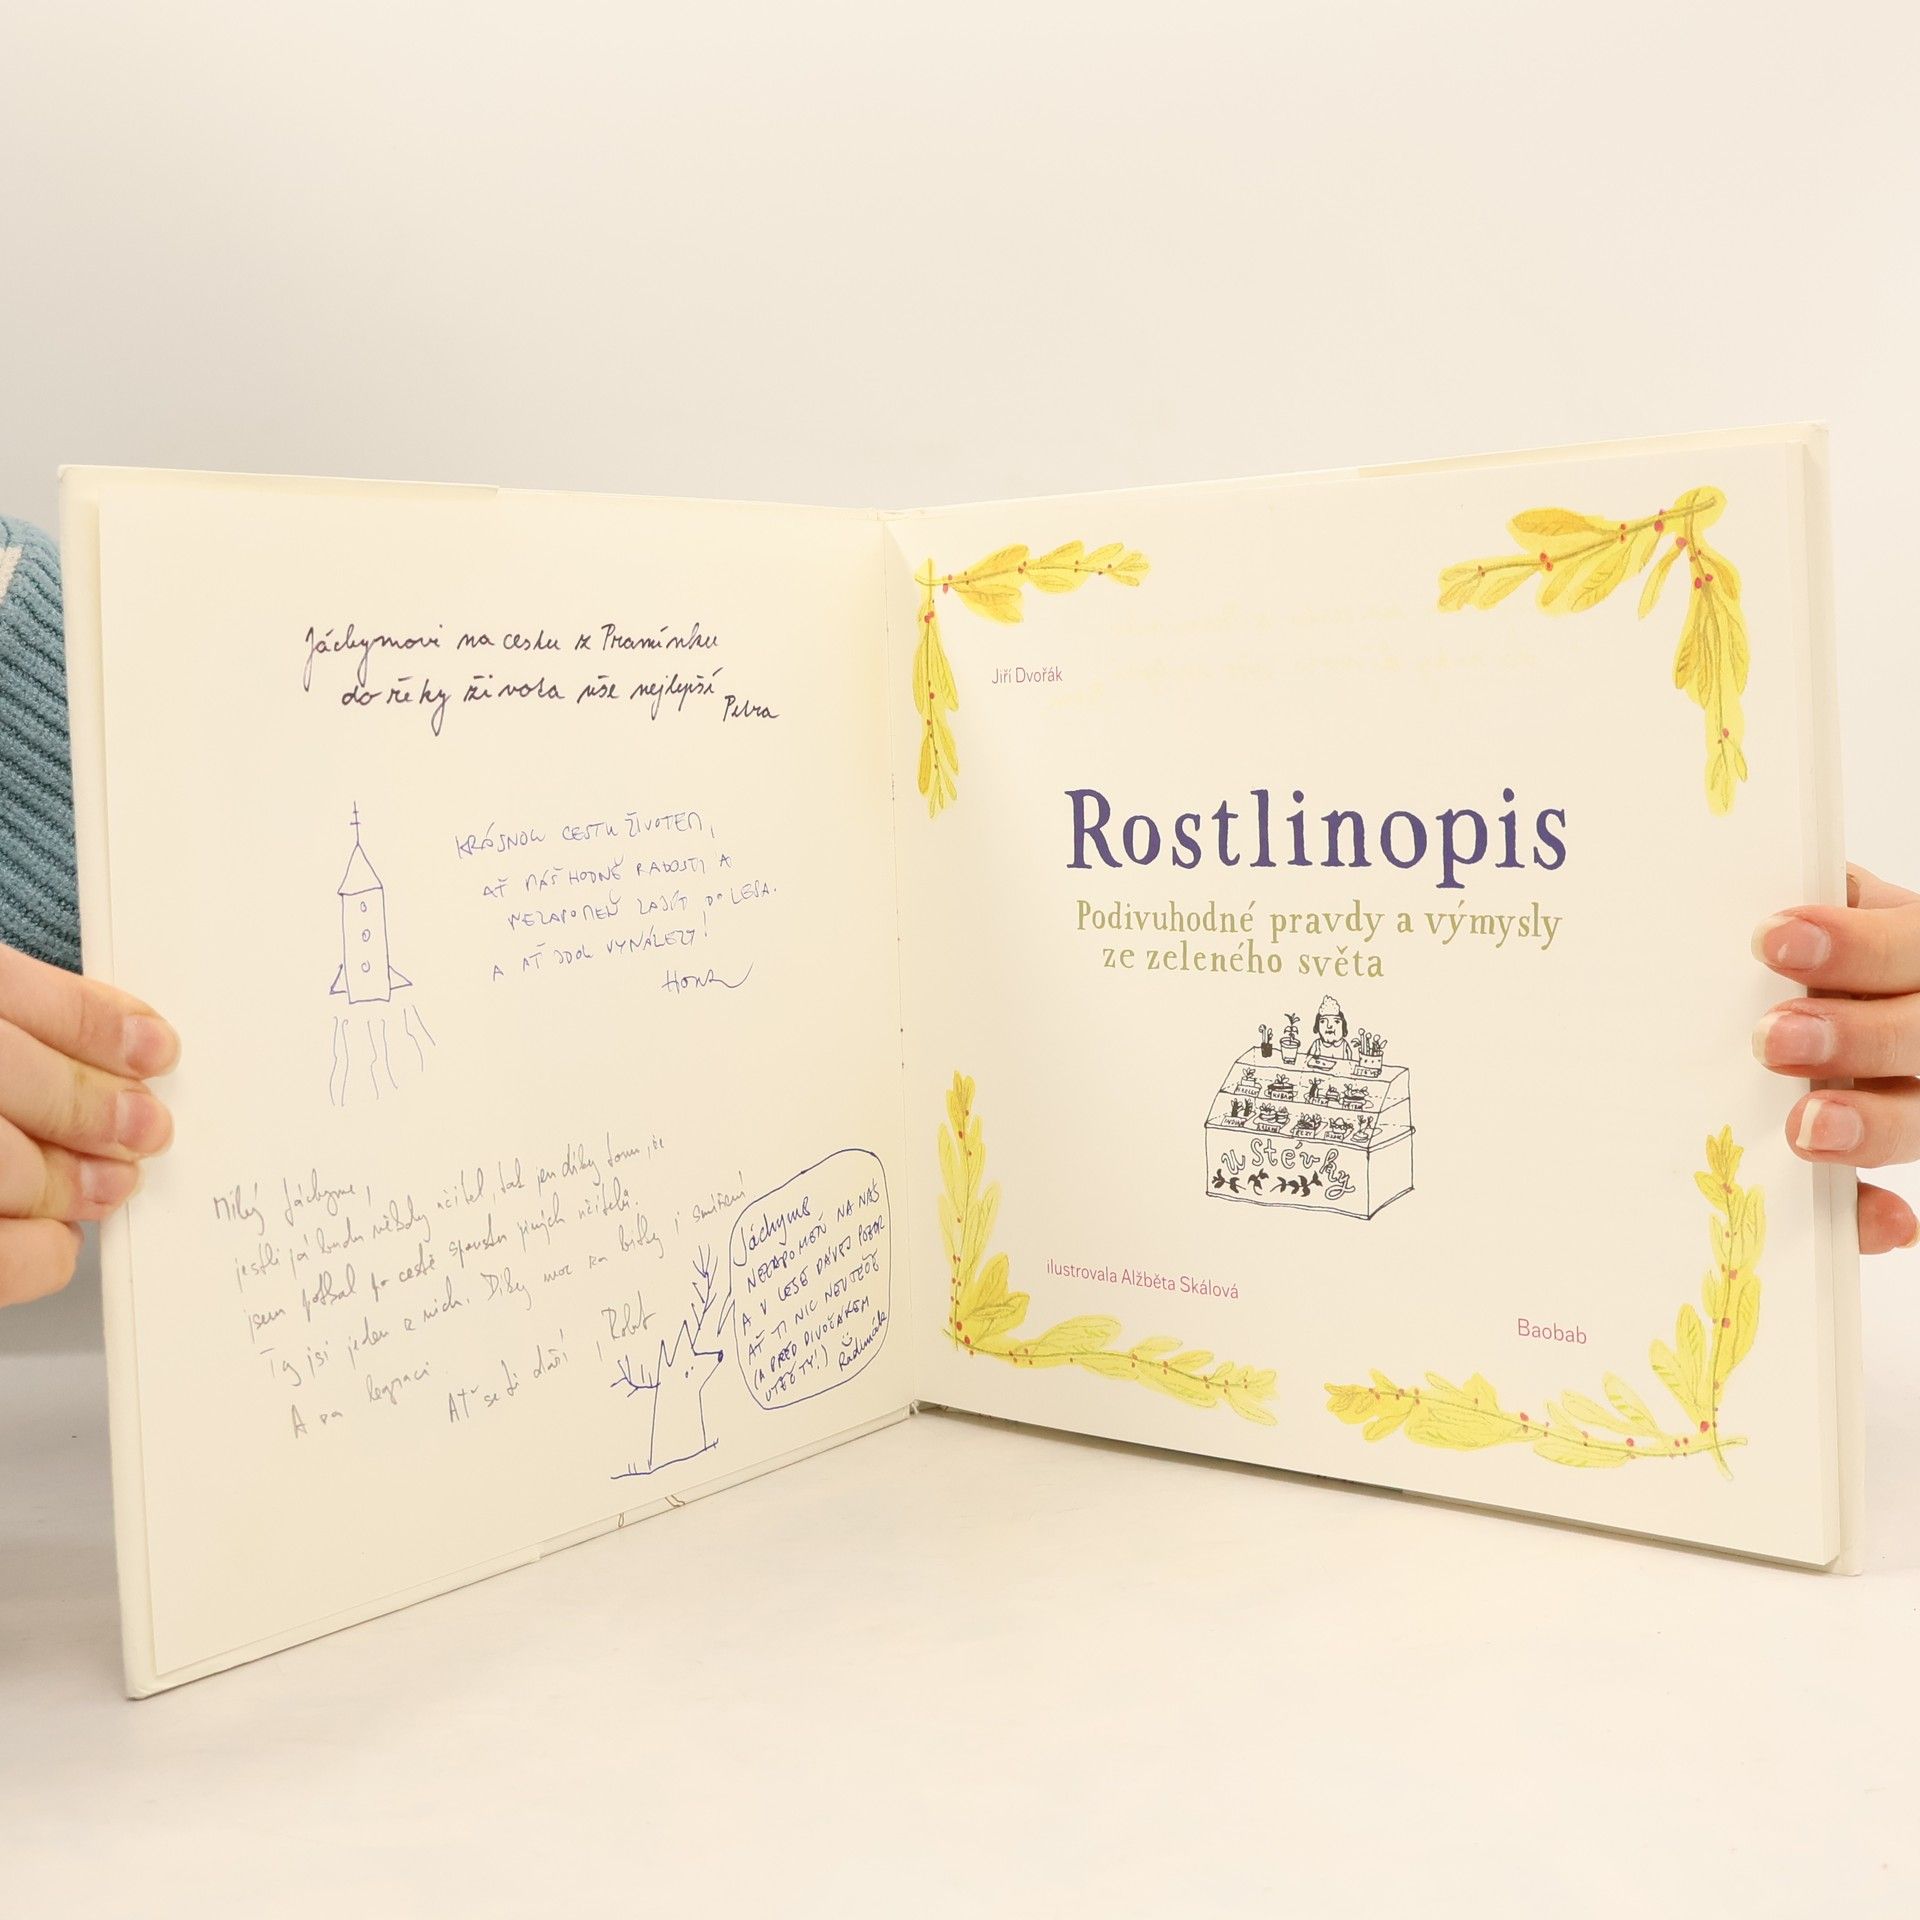 Jáchymovi na cestu z Pramínku
do řeky života vše nejlepší
Petra
KRÁSNOU CESTU ŽIVOTEM,
AŤ MÁŠ HODNĚ RADOSTI A
NEZAPOMEŇ ZAJÍT DO LESA.
A AŤ JDOU VYNÁLEZY!
Honza
Milý Jáchyme,
jestli já budu někdy učitel, tak jen díky tomu, že
jsem potkal po cestě spoustu jiných učitelů.
Ty jsi jeden z nich. Díky moc za bitky i smíření
A za legraci
Ať se ti daří, Robert
Jáchyme
NEZAPOMEŇ NA NÁS
A V LESE DÁVEJ POZOR
AŤ TI NIC NEUTEČE
(A PŘED DIVOČÁKEM
UTEČ TY!) Radimák
Jiří Dvořák
Rostlinopis
Podivuhodné pravdy a výmysly
ze zeleného světa
u Stévky
ilustrovala Alžběta Skálová
Baobab